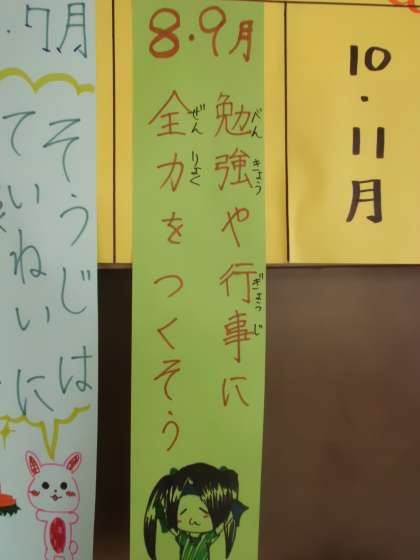 10・11月
8・9月
勉強や行事に
全力をつくそう
べんきょう
ぎょうじ
ぜんりょく
・7月
そうじは
ていねいに